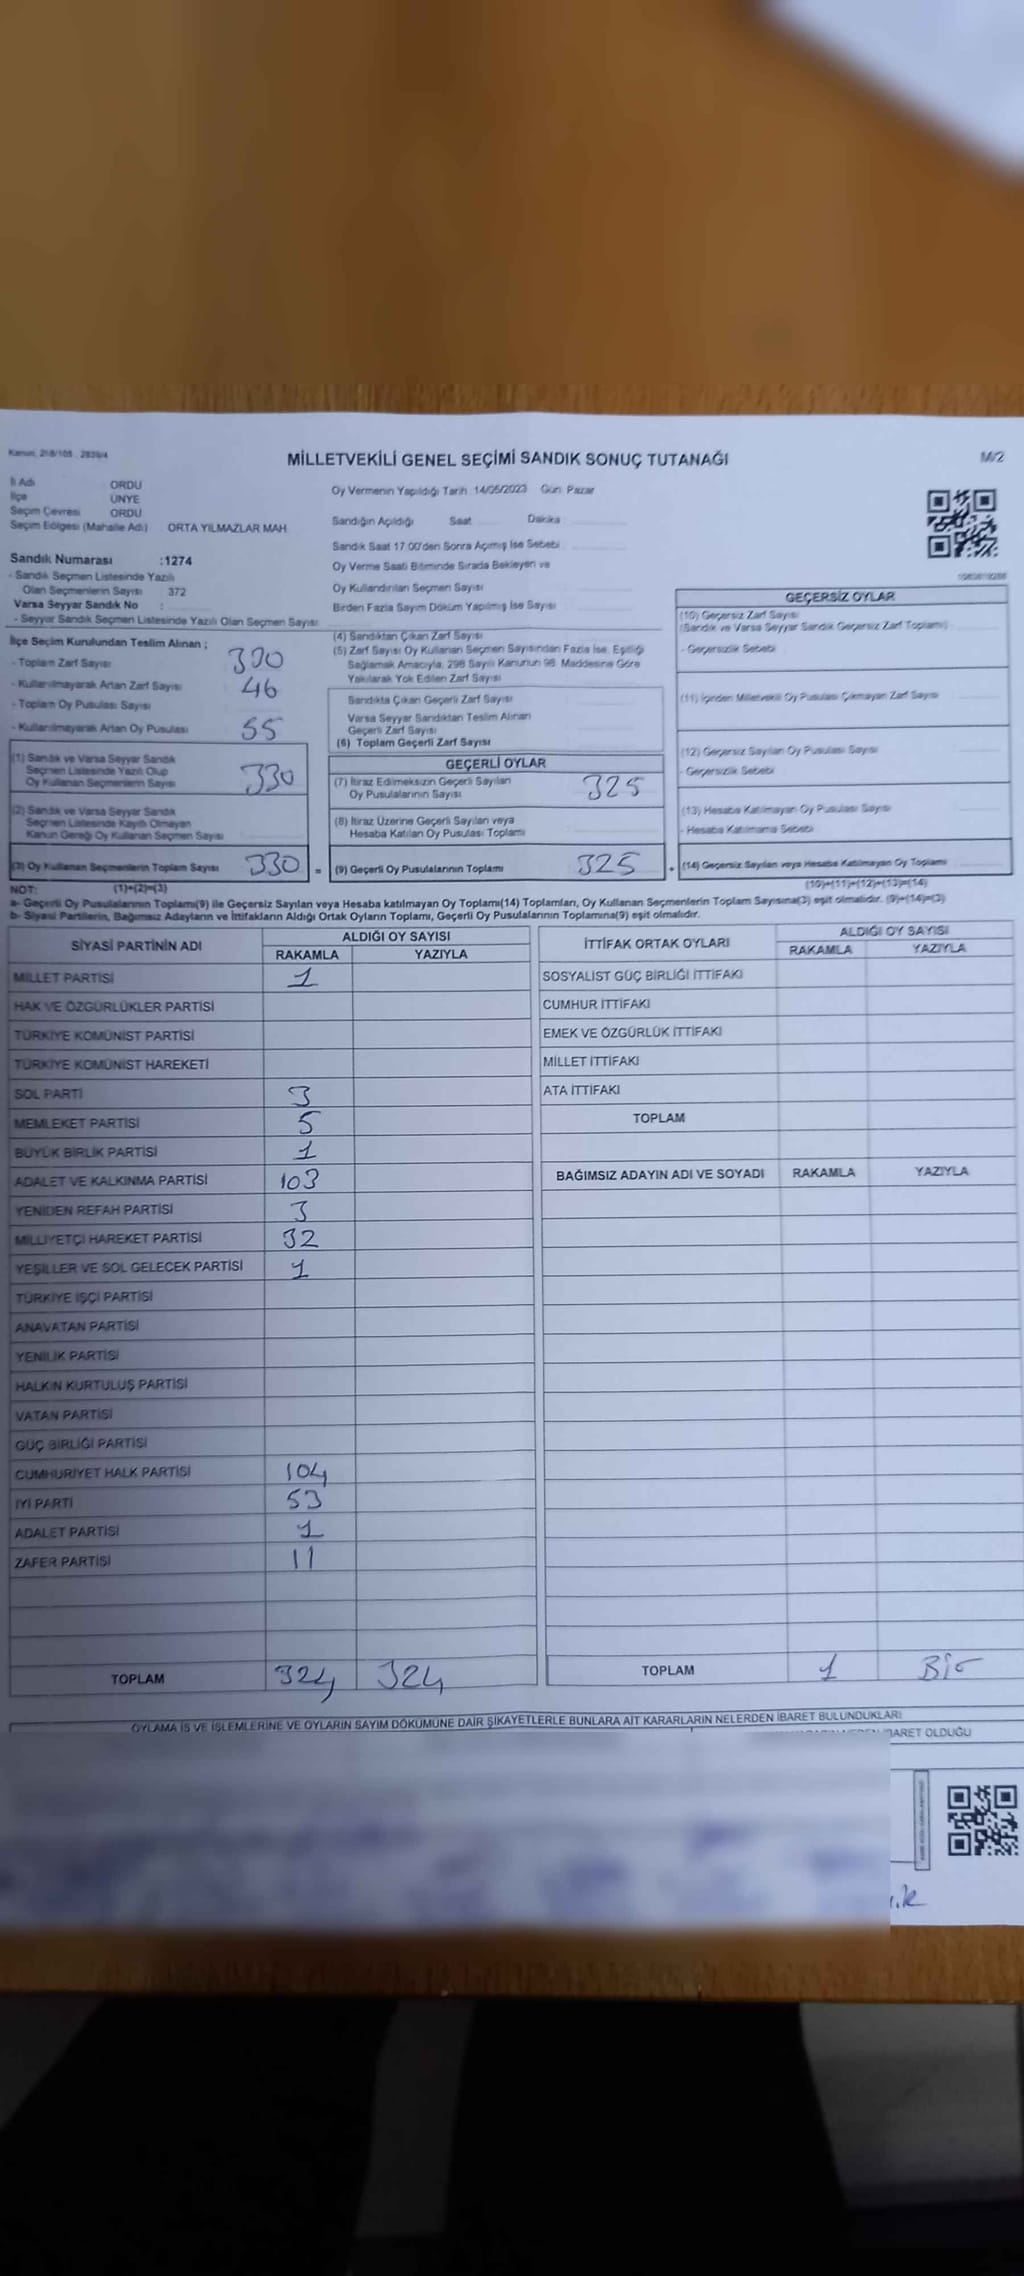 Kanun, 298/105 , 2839/4
MİLLETVEKİLİ GENEL SEÇİMİ SANDIK SONUÇ TUTANAĞI
M/2
İl Adı ORDU
İlçe ÜNYE
Seçim Çevresi ORDU
Seçim Bölgesi (Mahalle Adı) ORTA YILMAZLAR MAH.
Sandık Numarası :1274
- Sandık Seçmen Listesinde Yazılı
Olan Seçmenlerin Sayısı 372
Varsa Seyyar Sandık No :
- Seyyar Sandık Seçmen Listesinde Yazılı Olan Seçmen Sayısı
Oy Vermenin Yapıldığı Tarih 14/05/2023 Gün: Pazar
Sandığın Açıldığı Saat Dakika
Sandık Saat 17.00'den Sonra Açılmış İse Sebebi
Oy Verme Saati Bitiminde Sırada Bekleyen ve
Oy Kullandırılan Seçmen Sayısı
Birden Fazla Sayım Döküm Yapılmış İse Sayısı
İlçe Seçim Kurulundan Teslim Alınan ;
- Toplam Zarf Sayısı
- Kullanılmayarak Artan Zarf Sayısı 46
- Toplam Oy Pusulası Sayısı
- Kullanılmayarak Artan Oy Pusulası 55
(1) Sandık ve Varsa Seyyar Sandık
Seçmen Listesinde Yazılı Olup
Oy Kullanan Seçmenlerin Sayısı 330
(2) Sandık ve Varsa Seyyar Sandık
Seçmen Listesinde Kayıtlı Olmayan
Kanun Gereği Oy Kullanan Seçmen Sayısı
(3) Oy Kullanan Seçmenlerin Toplam Sayısı 330 =
(4) Sandıktan Çıkan Zarf Sayısı
(5) Zarf Sayısı Oy Kullanan Seçmen Sayısından Fazla İse, Eşitliği
Sağlamak Amacıyla, 298 Sayılı Kanunun 98. Maddesine Göre
Yakılarak Yok Edilen Zarf Sayısı
Sandıkta Çıkan Geçerli Zarf Sayısı
Varsa Seyyar Sandıktan Teslim Alınan
Geçerli Zarf Sayısı
(6) Toplam Geçerli Zarf Sayısı
GEÇERLİ OYLAR
(7) İtiraz Edilmeksizin Geçerli Sayılan
Oy Pusulalarının Sayısı 325
(8) İtiraz Üzerine Geçerli Sayılan veya
Hesaba Katılan Oy Pusulası Toplamı
(9) Geçerli Oy Pusulalarının Toplamı 325 +
GEÇERSİZ OYLAR
(10) Geçersiz Zarf Sayısı
(Sandık ve Varsa Seyyar Sandık Geçersiz Zarf Toplamı)
- Geçersizlik Sebebi
(11) İçinden Milletvekili Oy Pusulası Çıkmayan Zarf Sayısı
(12) Geçersiz Sayılan Oy Pusulası Sayısı
- Geçersizlik Sebebi
(13) Hesaba Katılmayan Oy Pusulası Sayısı
- Hesaba Katılmama Sebebi
(14) Geçersiz Sayılan veya Hesaba Katılmayan Oy Toplamı
NOT: (1)+(2)=(3) (10)+(11)+(12)+(13)=(14)
a- Geçerli Oy Pusulalarının Toplamı(9) ile Geçersiz Sayılan veya Hesaba katılmayan Oy Toplamı(14) Toplamları, Oy Kullanan Seçmenlerin Toplam Sayısına(3) eşit olmalıdır. (9)+(14)=(3)
b- Siyasi Partilerin, Bağımsız Adayların ve İttifakların Aldığı Ortak Oyların Toplamı, Geçerli Oy Pusulalarının Toplamına(9) eşit olmalıdır.
SİYASİ PARTİNİN ADI ALDIĞI OY SAYISI
RAKAMLA YAZIYLA
MİLLET PARTİSİ 1
HAK VE ÖZGÜRLÜKLER PARTİSİ
TÜRKİYE KOMÜNİST PARTİSİ
TÜRKİYE KOMÜNİST HAREKETİ
SOL PARTİ 3
MEMLEKET PARTİSİ 5
BÜYÜK BİRLİK PARTİSİ 1
ADALET VE KALKINMA PARTİSİ 103
YENİDEN REFAH PARTİSİ 3
MİLLİYETÇİ HAREKET PARTİSİ 32
YEŞİLLER VE SOL GELECEK PARTİSİ 1
TÜRKİYE İŞÇİ PARTİSİ
ANAVATAN PARTİSİ
YENİLİK PARTİSİ
HALKIN KURTULUŞ PARTİSİ
VATAN PARTİSİ
GÜÇ BİRLİĞİ PARTİSİ
CUMHURİYET HALK PARTİSİ 104
İYİ PARTİ 53
ADALET PARTİSİ 1
ZAFER PARTİSİ 11
TOPLAM 324 324
İTTİFAK ORTAK OYLARI ALDIĞI OY SAYISI
RAKAMLA YAZIYLA
SOSYALİST GÜÇ BİRLİĞİ İTTİFAKI
CUMHUR İTTİFAKI
EMEK VE ÖZGÜRLÜK İTTİFAKI
MİLLET İTTİFAKI
ATA İTTİFAKI
TOPLAM
BAĞIMSIZ ADAYIN ADI VE SOYADI RAKAMLA YAZIYLA
TOPLAM 1 Bir
OYLAMA İŞ VE İŞLEMLERİNE VE OYLARIN SAYIM DÖKÜMÜNE DAİR ŞİKAYETLERLE BUNLARA AİT KARARLARIN NELERDEN İBARET BULUNDUKLARI
OLDUĞU